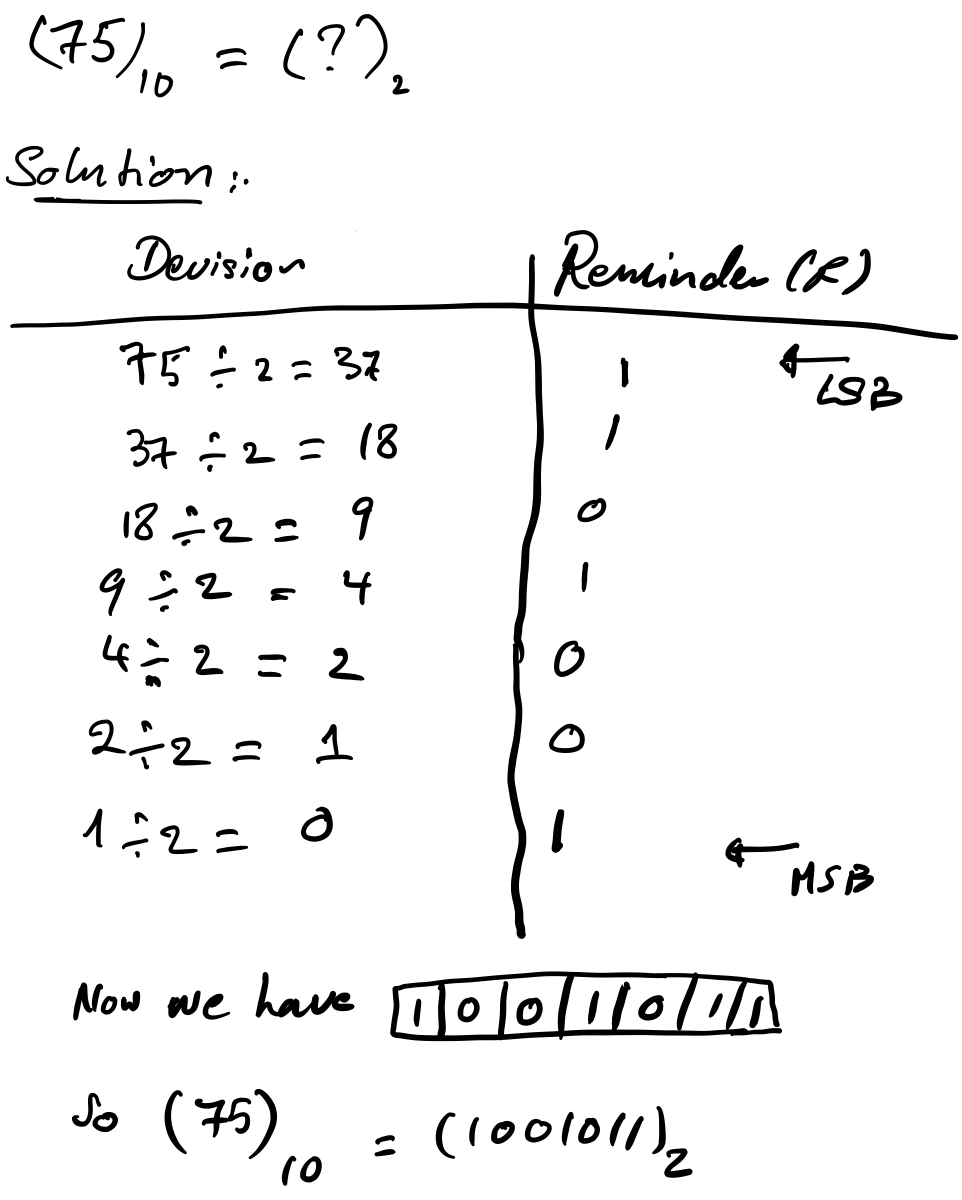 (75)₁₀ = (?)₂
Solution :.
Devision Reminder (R)
75 ÷ 2 = 37 1 ← LSB
37 ÷ 2 = 18 1
18 ÷ 2 = 9 0
9 ÷ 2 = 4 1
4 ÷ 2 = 2 0
2 ÷ 2 = 1 0
1 ÷ 2 = 0 1 ← MSB
Now we have 1 0 0 1 0 1 1
So (75)₁₀ = (1001011)₂